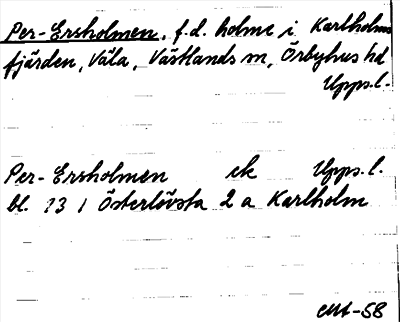 Per-Ersholmen, f.d. holme i Karlholms
fjärden, Väla, Västlands sn, Örbyhus hd
Upps.l.
Per-Ersholmen ek Upps.l.
bl. 131 Österlövsta 2 a Karlholm
-58